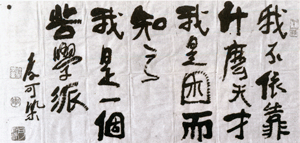 我不依靠
什麼天才
我是困而
知之
我是一個
苦學派
李可染